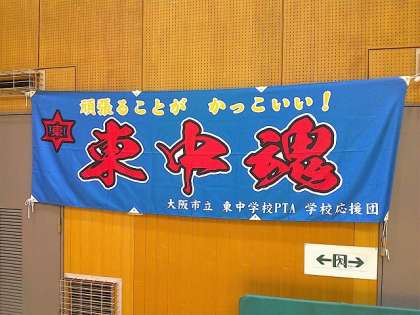 頑張ることが かっこいい！
東
東中魂
大阪市立 東中学校PTA 学校応援団